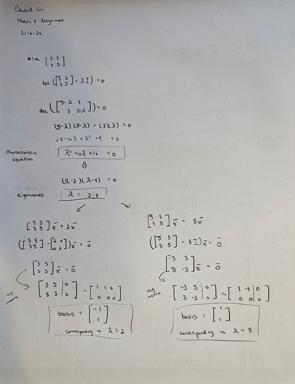 Matrix 4 Assignment
3/16/24
#1a [5 3; 3 5]
det([5 3; 3 5] - λI) = 0
det([5-λ 3; 3 5-λ]) = 0
(5-λ)(5-λ) - (3)(3) = 0
characteristic equation
(λ-2)(λ-8) = 0
eigenvalues λ = 2, 8
[5 3; 3 5] x̄ = 2x̄
[3 3; 3 3] x̄ = 0̄
[3 3 | 0; 3 3 | 0] ~ [1 1 0; 0 0 0]
basis = [-1; 1]
corresponding to λ = 2
[5 3; 3 5] x̄ = 8x̄
([5 3; 3 5] - 8I) x̄ = 0̄
[-3 3; 3 -3] x̄ = 0̄
aug matrix [-3 3 | 0; 3 -3 | 0] ~ [1 -1 | 0; 0 0 | 0]
basis = [1; 1]
corresponding to λ = 8